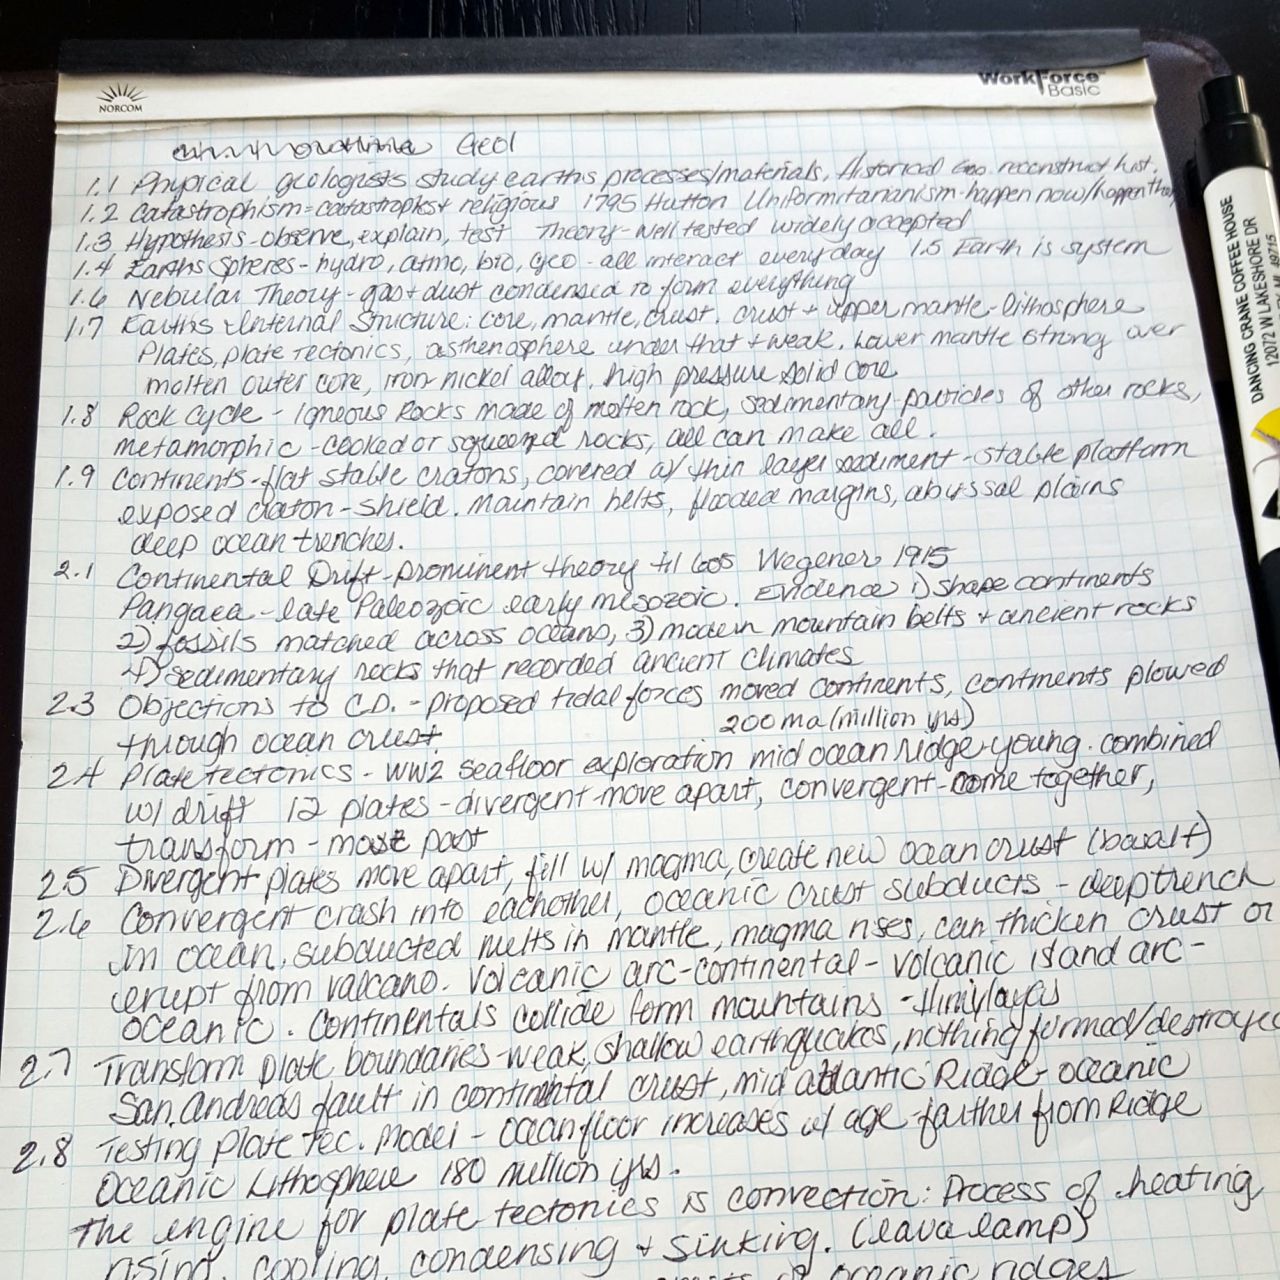 NORCOM
WorkForce
Basic
Geol
1.1 Physical geologists study earths processes/materials, Historical Geo. reconstruct hist.
1.2 Catastrophism=catastrophes+ religious 1795 Hutton Uniformitarianism-happen now/happen then
1.3 Hypothesis-observe, explain, test Theory-well tested widely accepted
1.4 Earths Spheres-hydro, atmo, bio, geo-all interact everyday 1.5 Earth is system
1.6 Nebular Theory-gas+dust condensed to form everything
1.7 Earths Internal Structure: core, mantle, crust. crust + upper mantle-lithosphere
Plates, plate tectonics, asthenosphere under that + weak. Lower mantle strong over
molten outer core, iron nickel alloy. high pressure solid core
1.8 Rock Cycle - Igneous Rocks made of molten rock, sedimentary-particles of other rocks,
metamorphic-cooked or squeezed rocks, all can make all.
1.9 Continents-flat stable cratons, covered w/ thin layer sediment-stable platform
exposed craton-shield. Mountain belts, flooded margins, abyssal plains
deep ocean trenches.
2.1 Continental Drift-prominent theory til 60s Wegener 1915
Pangaea-late Paleozoic early mesozoic. Evidence 1) shape continents
2) fossils matched across oceans, 3) modern mountain belts + ancient rocks
4) sedimentary rocks that recorded ancient climates
2.3 Objections to C.D.-proposed tidal forces moved continents, continents plowed
through ocean crust. 200 ma (million yrs)
2.4 Plate tectonics-WW2 seafloor exploration mid ocean ridge-young. combined
w/ drift 12 plates-divergent-move apart, convergent-come together,
transform-move past
2.5 Divergent plates move apart, fill w/ magma, create new ocean crust (basalt)
2.6 Convergent crash into eachother, oceanic crust subducts-deep trench
in ocean, subducted melts in mantle, magma rises, can thicken crust or
erupt from valcano. Volcanic arc-continental-volcanic island arc-
oceanic. Continentals collide form mountains-Himilayas
2.7 Transform plate boundaries-weak, shallow earthquakes, nothing formed/destroyed
San Andreas fault in continental crust, mid atlantic Ridge-oceanic
2.8 Testing Plate Tec. Model-ocean floor increases w/ age-farther from Ridge
Oceanic Lithosphere 180 million yrs.
The engine for plate tectonics is convection: Process of heating
rising, cooling, condensing + sinking. (lava lamp)
oceanic ridges
DANCING CRANE COFFEE HOUSE
12072 W LAKESHORE DR
49715